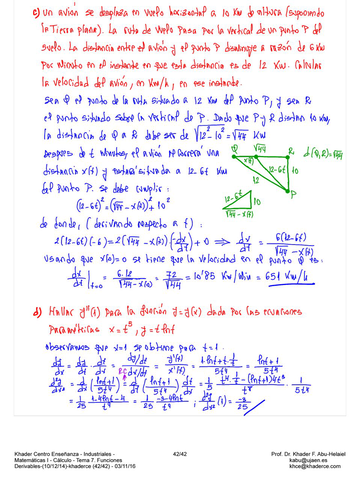 c) Un avión se desplaza en vuelo horizontal a 10 Km de altura (suponiendo
la Tierra plana). La ruta de vuelo pasa por la vertical de un punto P del
suelo. La distancia entre el avión y el punto P disminuye a razón de 6 Km
por minuto en el instante en que esta distancia es de 12 Km. Calcular
la velocidad del avión, en Km/h, en ese instante.
Sea Q el punto de la ruta situado a 12 Km del punto P, y sea R
el punto situado sobre la vertical de P. Dado que P y R distan 10 Km,
la distancia de Q a R debe ser de √(12²-10²) = √44 Km
Q √44 R d(Q,R)=√44
x(t) 12-6t 10
12
P
Después de t minutos, el avión recorrerá una
distancia x(t) y estará situado a 12-6t Km
del punto P. Se debe cumplir:
(12-6t)² = (√44 - x(t))² + 10²
12-6t 10
√44 - x(t)
de donde, (derivando respecto a t):
2(12-6t)(-6) = 2(√44 - x(t))(-dx/dt) + 0 ⟹ dx/dt = 6(12-6t)/(√44 - x(t))
Usando que x(0)=0 se tiene que la velocidad en el punto Q es:
dx/dt |t=0 = 6·12/(√44 - x(0)) = 72/√44 = 10'85 Km/min = 651 Km/h
d) Hallar y''(1) para la función y=y(x) dada por las ecuaciones
paramétricas x = t⁵, y = t lnt
Observamos que x=1 se obtiene para t=1.
dy/dx = dy/dt · dt/dx = (dy/dt)/(dx/dt) = y'(t)/x'(t) = (1·lnt + t·1/t)/5t⁴ = (lnt+1)/5t⁴
d²y/dx² = d/dx((lnt+1)/5t⁴) = d/dt((lnt+1)/5t⁴) dt/dx = 1/5 · (t⁴·1/t - (lnt+1)4t³)/t⁸ · 1/5t⁴
= 1/25 · (1-4lnt-4)/t⁹ = 1/25 · (-3-4lnt)/t⁹ ; d²y/dx²(1) = -3/25
Khader Centro Enseñanza - Industriales -
Matemáticas I - Cálculo - Tema 7. Funciones
Derivables-(10/12/14)-khaderce (42/42) - 03/11/16
42/42
Prof. Dr. Khader F. Abu-Helaiel
kabu@ujaen.es
khce@khaderce.com